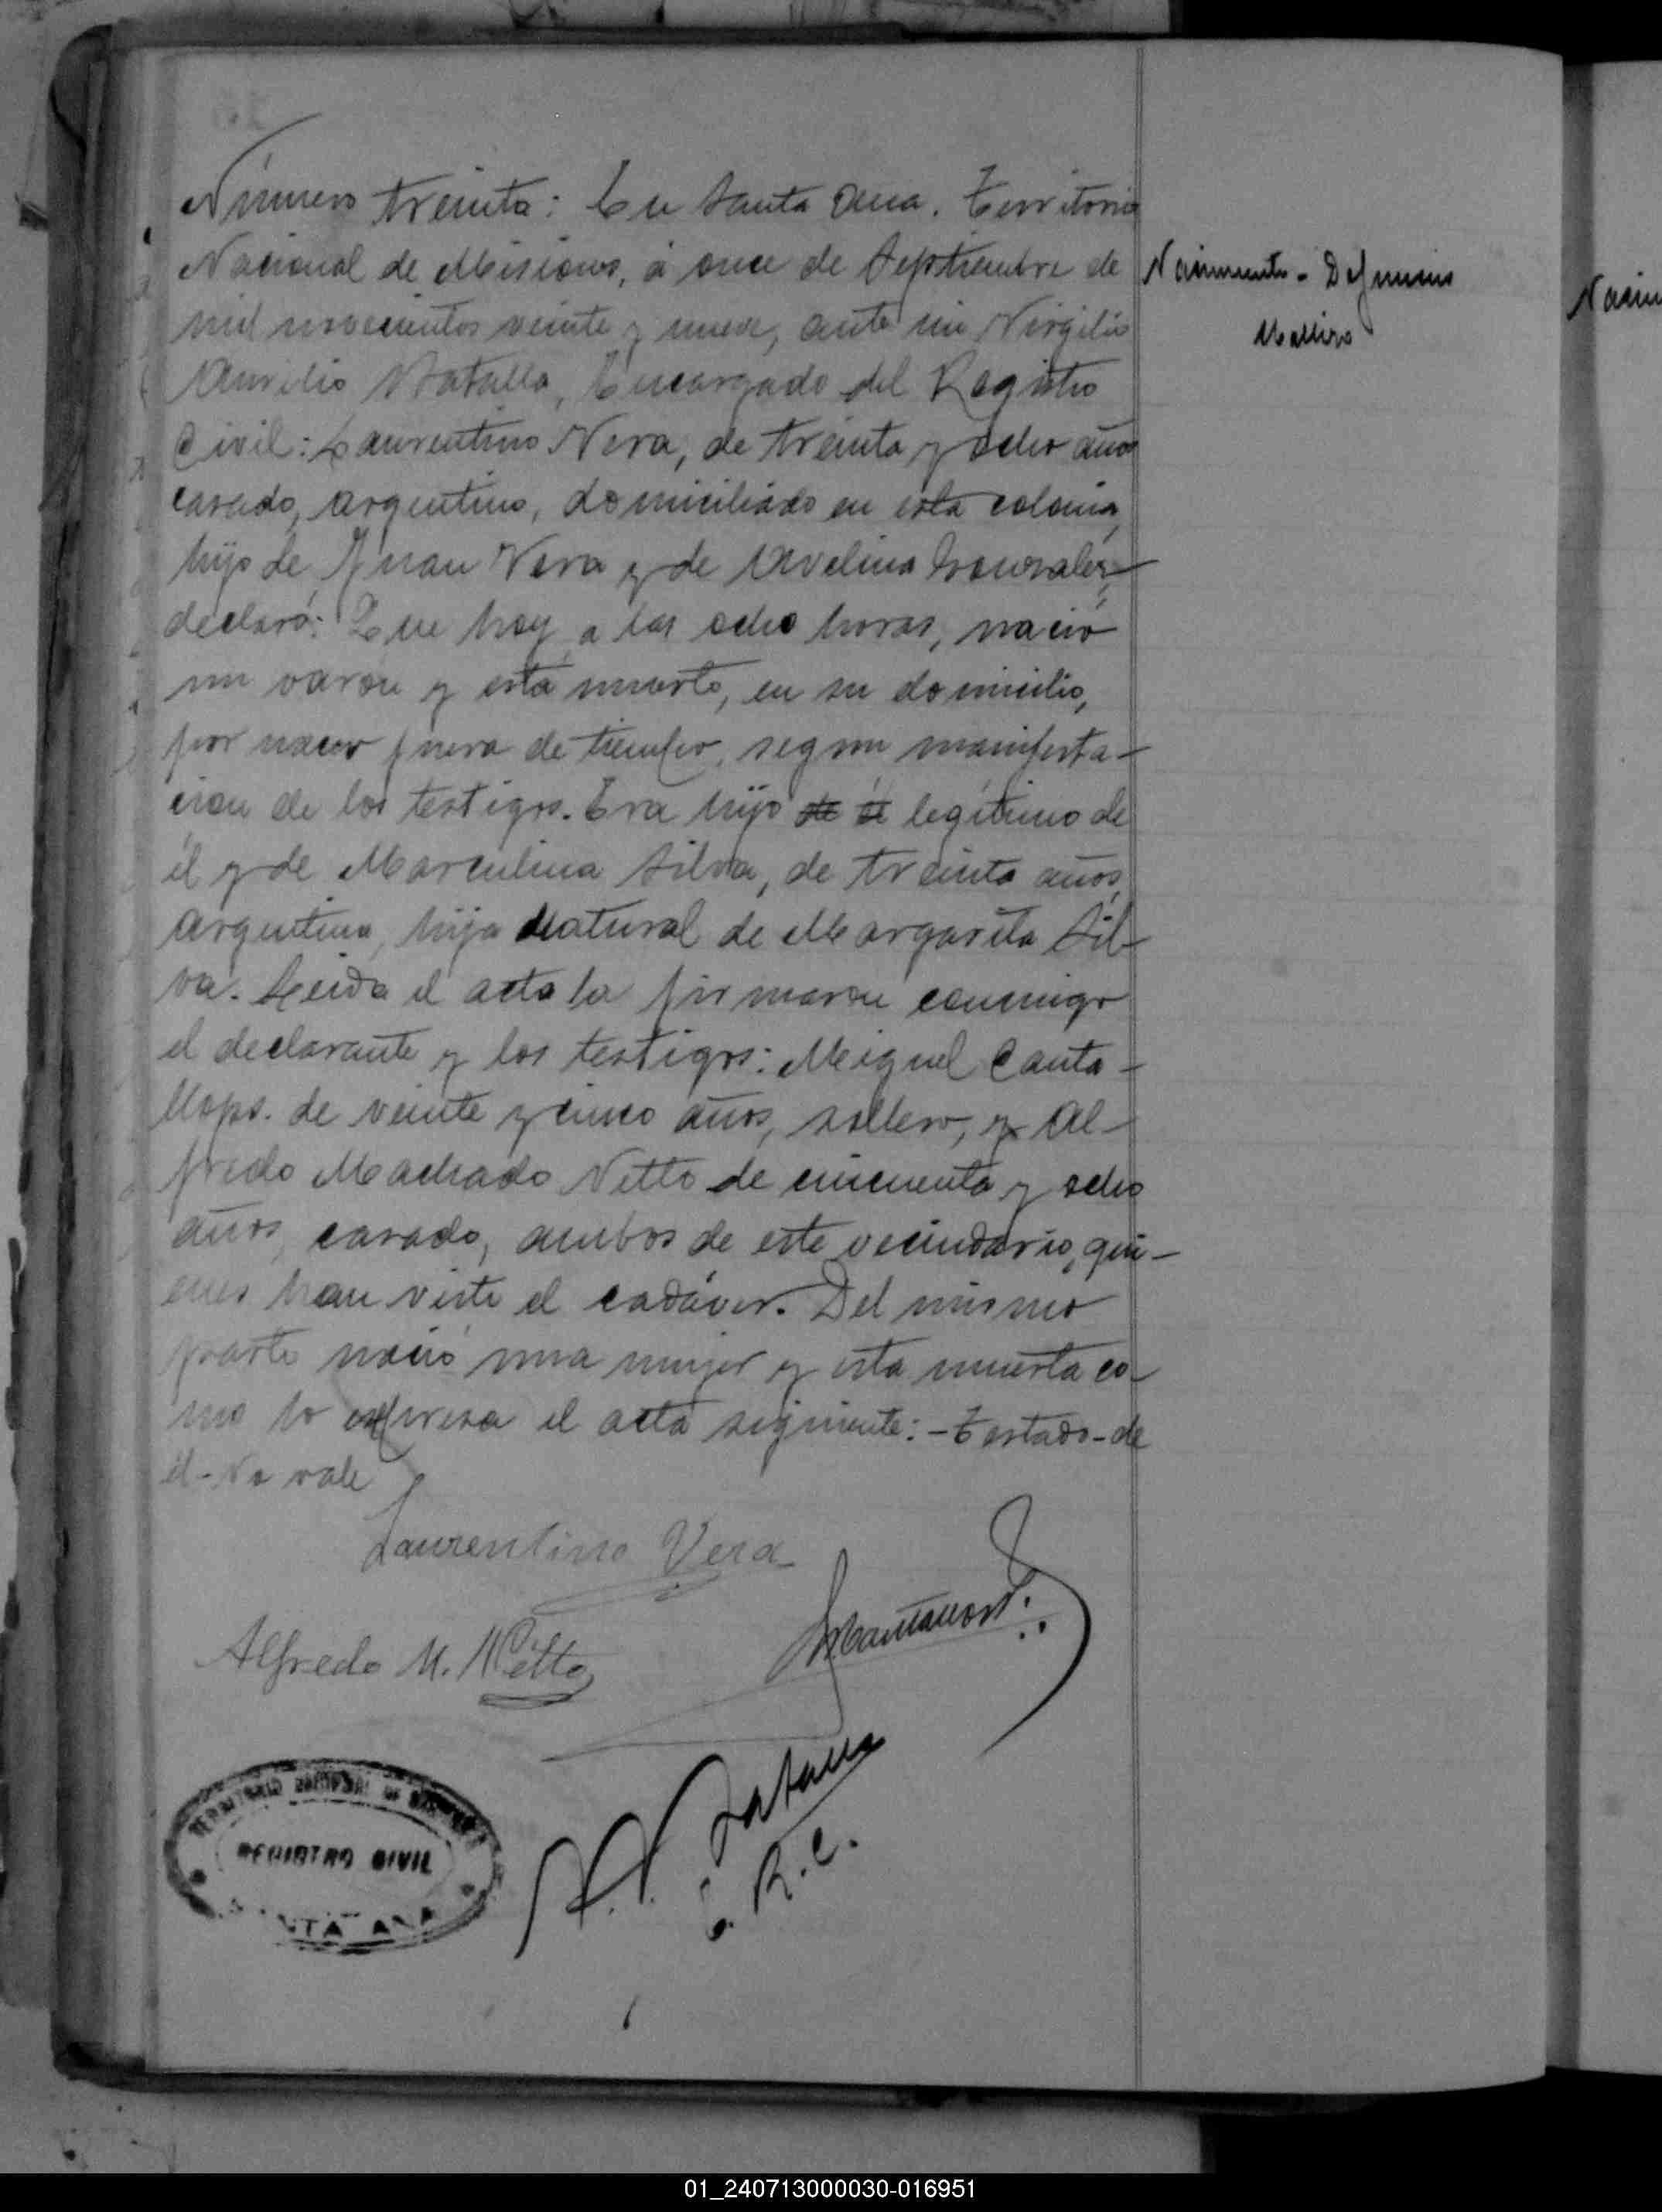 Número treinta: En Santa Ana, Territorio
Nacional de Misiones, á once de Septiembre de
mil novecientos veinte y nueve, ante mi Virgilio
Aurelio Batalla, Encargado del Registro
Civil: Laurentino Vera, de treinta y ocho años
casado, argentino, domiciliado en esta colonia,
hijo de Juan Vera y de Avelina Gonzalez,
declaró: Que hoy, a las ocho horas, nació
un varón y está muerto, en su domicilio,
por nacer fuera de tiempo, segun manifesta-
cion de los testigos. Era hijo de él legítimo de
él y de Marculina Silva, de treinta años,
argentina, hija natural de Margarita Sil-
va. Leida el acta la firmaron conmigo
el declarante y los testigos: Miguel Canta-
llops. de veinte y cinco años, soltero, y Al-
fredo Machado Netto de cincuenta y ocho
años, casado, ambos de este vecindario, qui-
enes han visto el cadáver. Del mismo
parto nació una mujer y esta muerta co-
mo lo expresa el acta siguiente: - Testado - de
él - No vale
Nacimiento - Defunción
Mellizo
Nacim
Laurentino Vera
Alfredo M. Netto
V. A. Batalla
E. R. C.
TERRITORIO NACIONAL DE MISIONES
REGISTRO CIVIL
SANTA ANA
01_240713000030-016951